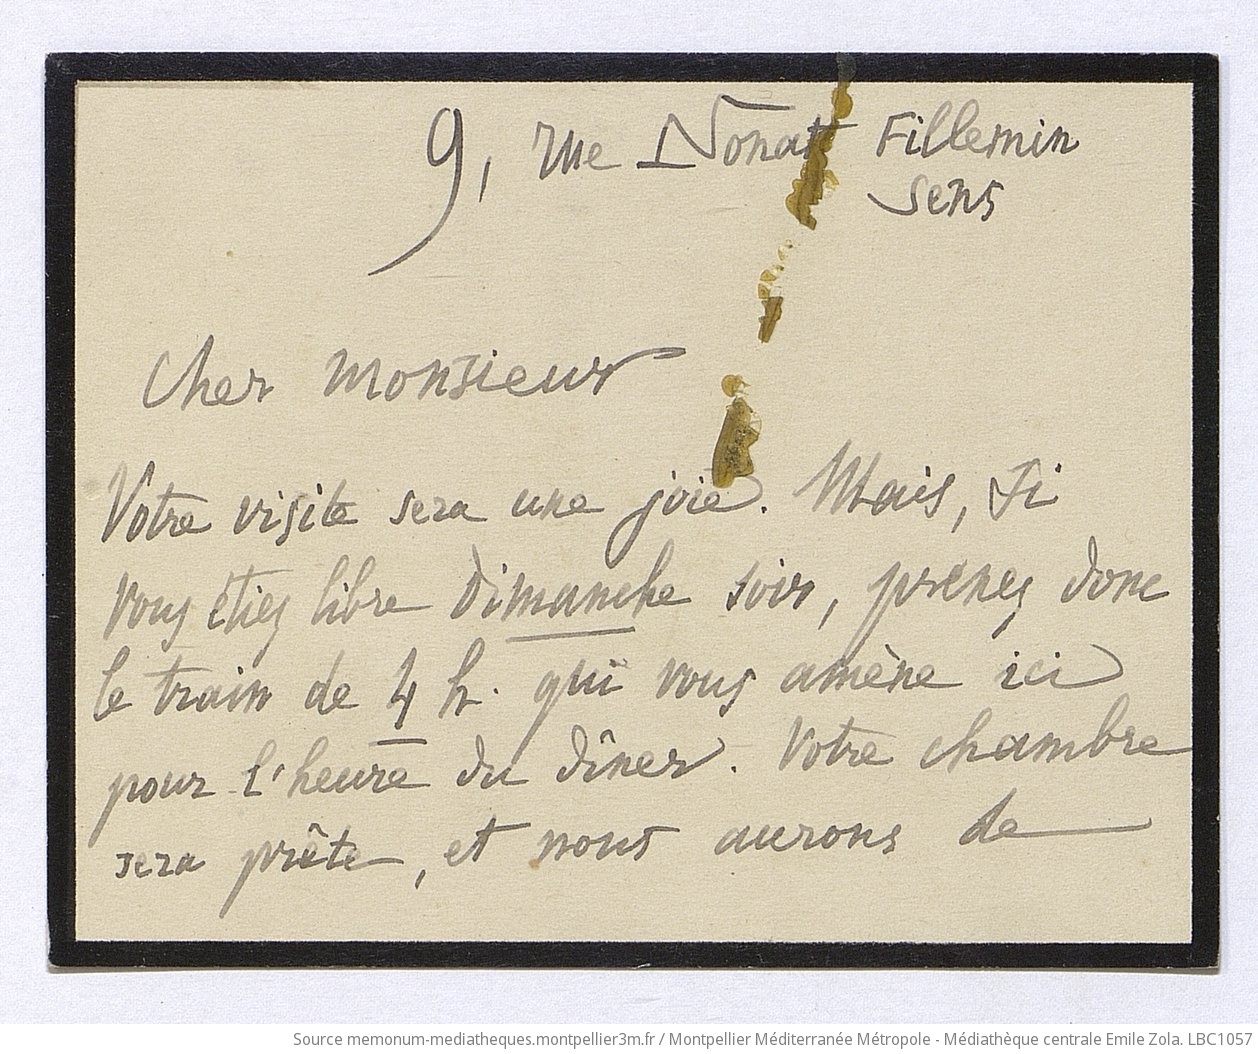 9, rue Nonat Fillemin
Sens
Cher Monsieur
Votre visite sera une joie. Mais, si
vous étiez libre Dimanche soir, prenez donc
le train de 4 h. qui vous amène ici
pour l'heure du dîner. Votre chambre
sera prête, et nous aurons de
Source memonum-mediatheques.montpellier3m.fr / Montpellier Méditerranée Métropole - Médiathèque centrale Emile Zola. LBC1057